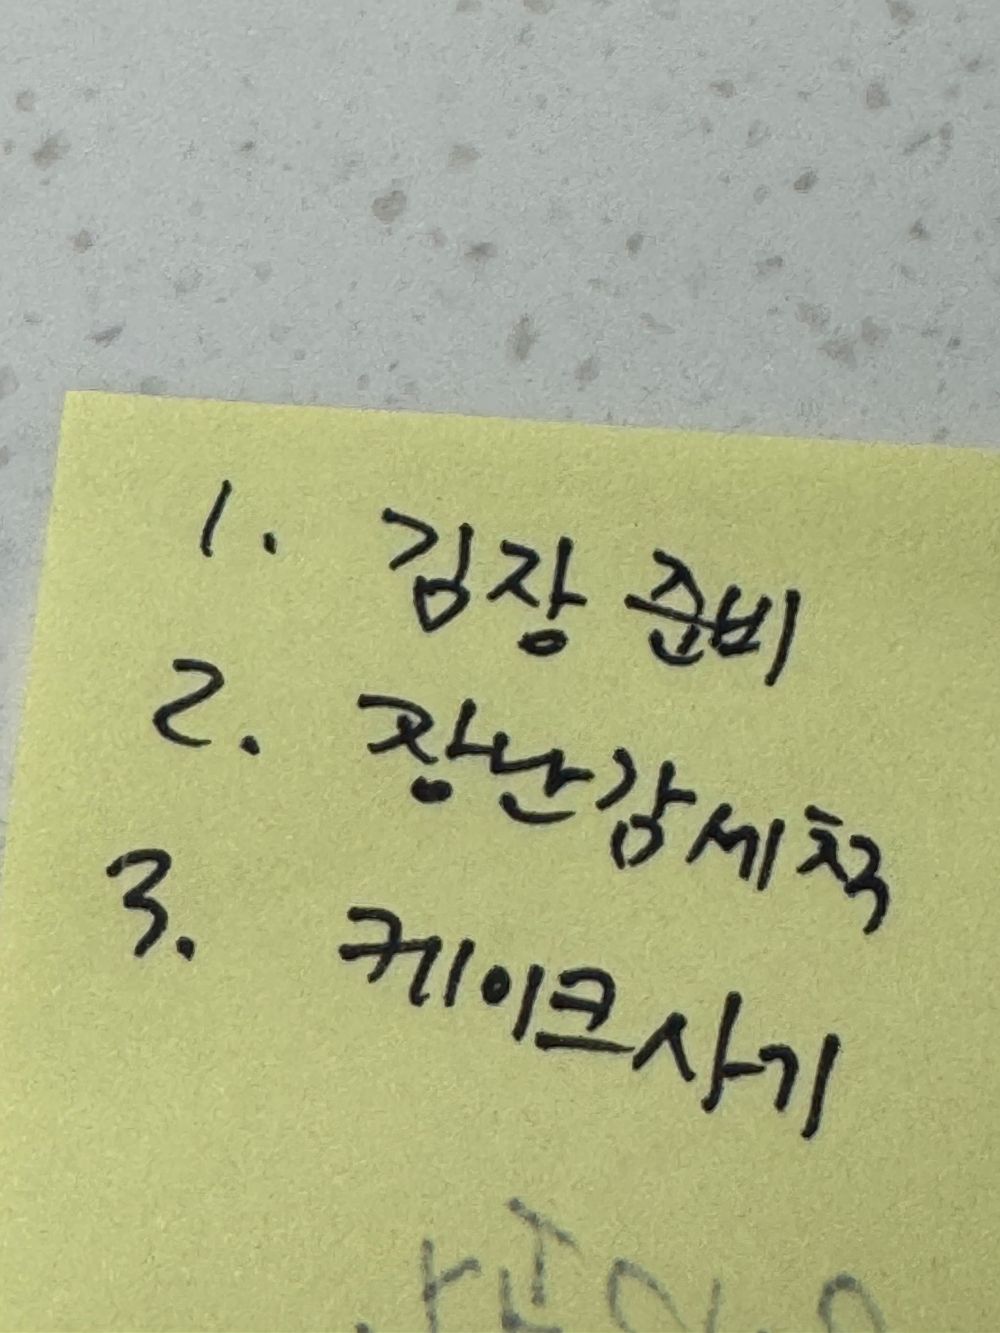 1. 김장 준비
2. 장난감세척
3. 케이크사기